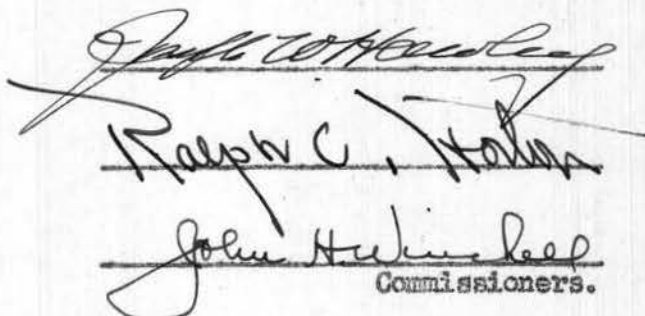 Joseph W Hawley
Ralph C. Horton
John H. Winchell
Commissioners.